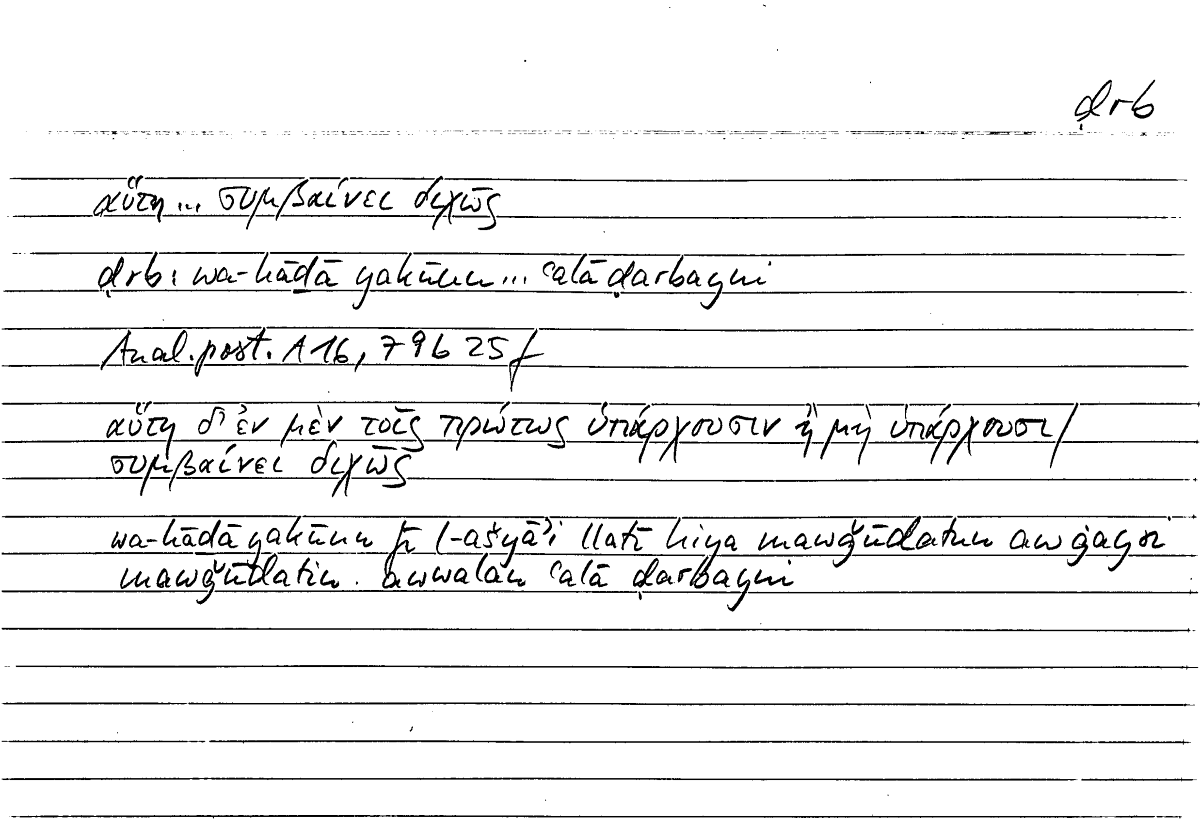 ḍrb
αὕτη ... συμβαίνει διχῶς
ḍrb: wa-hāḏā yakūnu ... ʿalā ḍarbayni
Anal. post. A 16, 79 b 25 f
αὕτη δ' ἐν μὲν τοῖς πρώτως ὑπάρχουσιν ἢ μὴ ὑπάρχουσι/
συμβαίνει διχῶς
wa-hāḏā yakūnu fī l-ašyāʾi llatī hiya mawǧūdatun aw ġayri
mawǧūdatin . awwalan ʿalā ḍarbayni